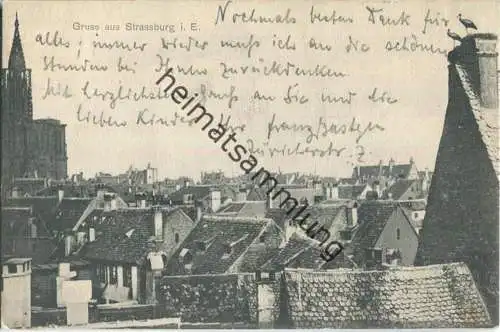 Gruss aus Strassburg i. E.
Nochmals besten Dank für
alles; immer wieder muss ich an die schönen
Stunden bei Ihnen zurückdenken
Mit herzlichsten Gruss an Sie und die
lieben Kinder Ihr Franz
Züricherstr. 2
heimatsammlung.com